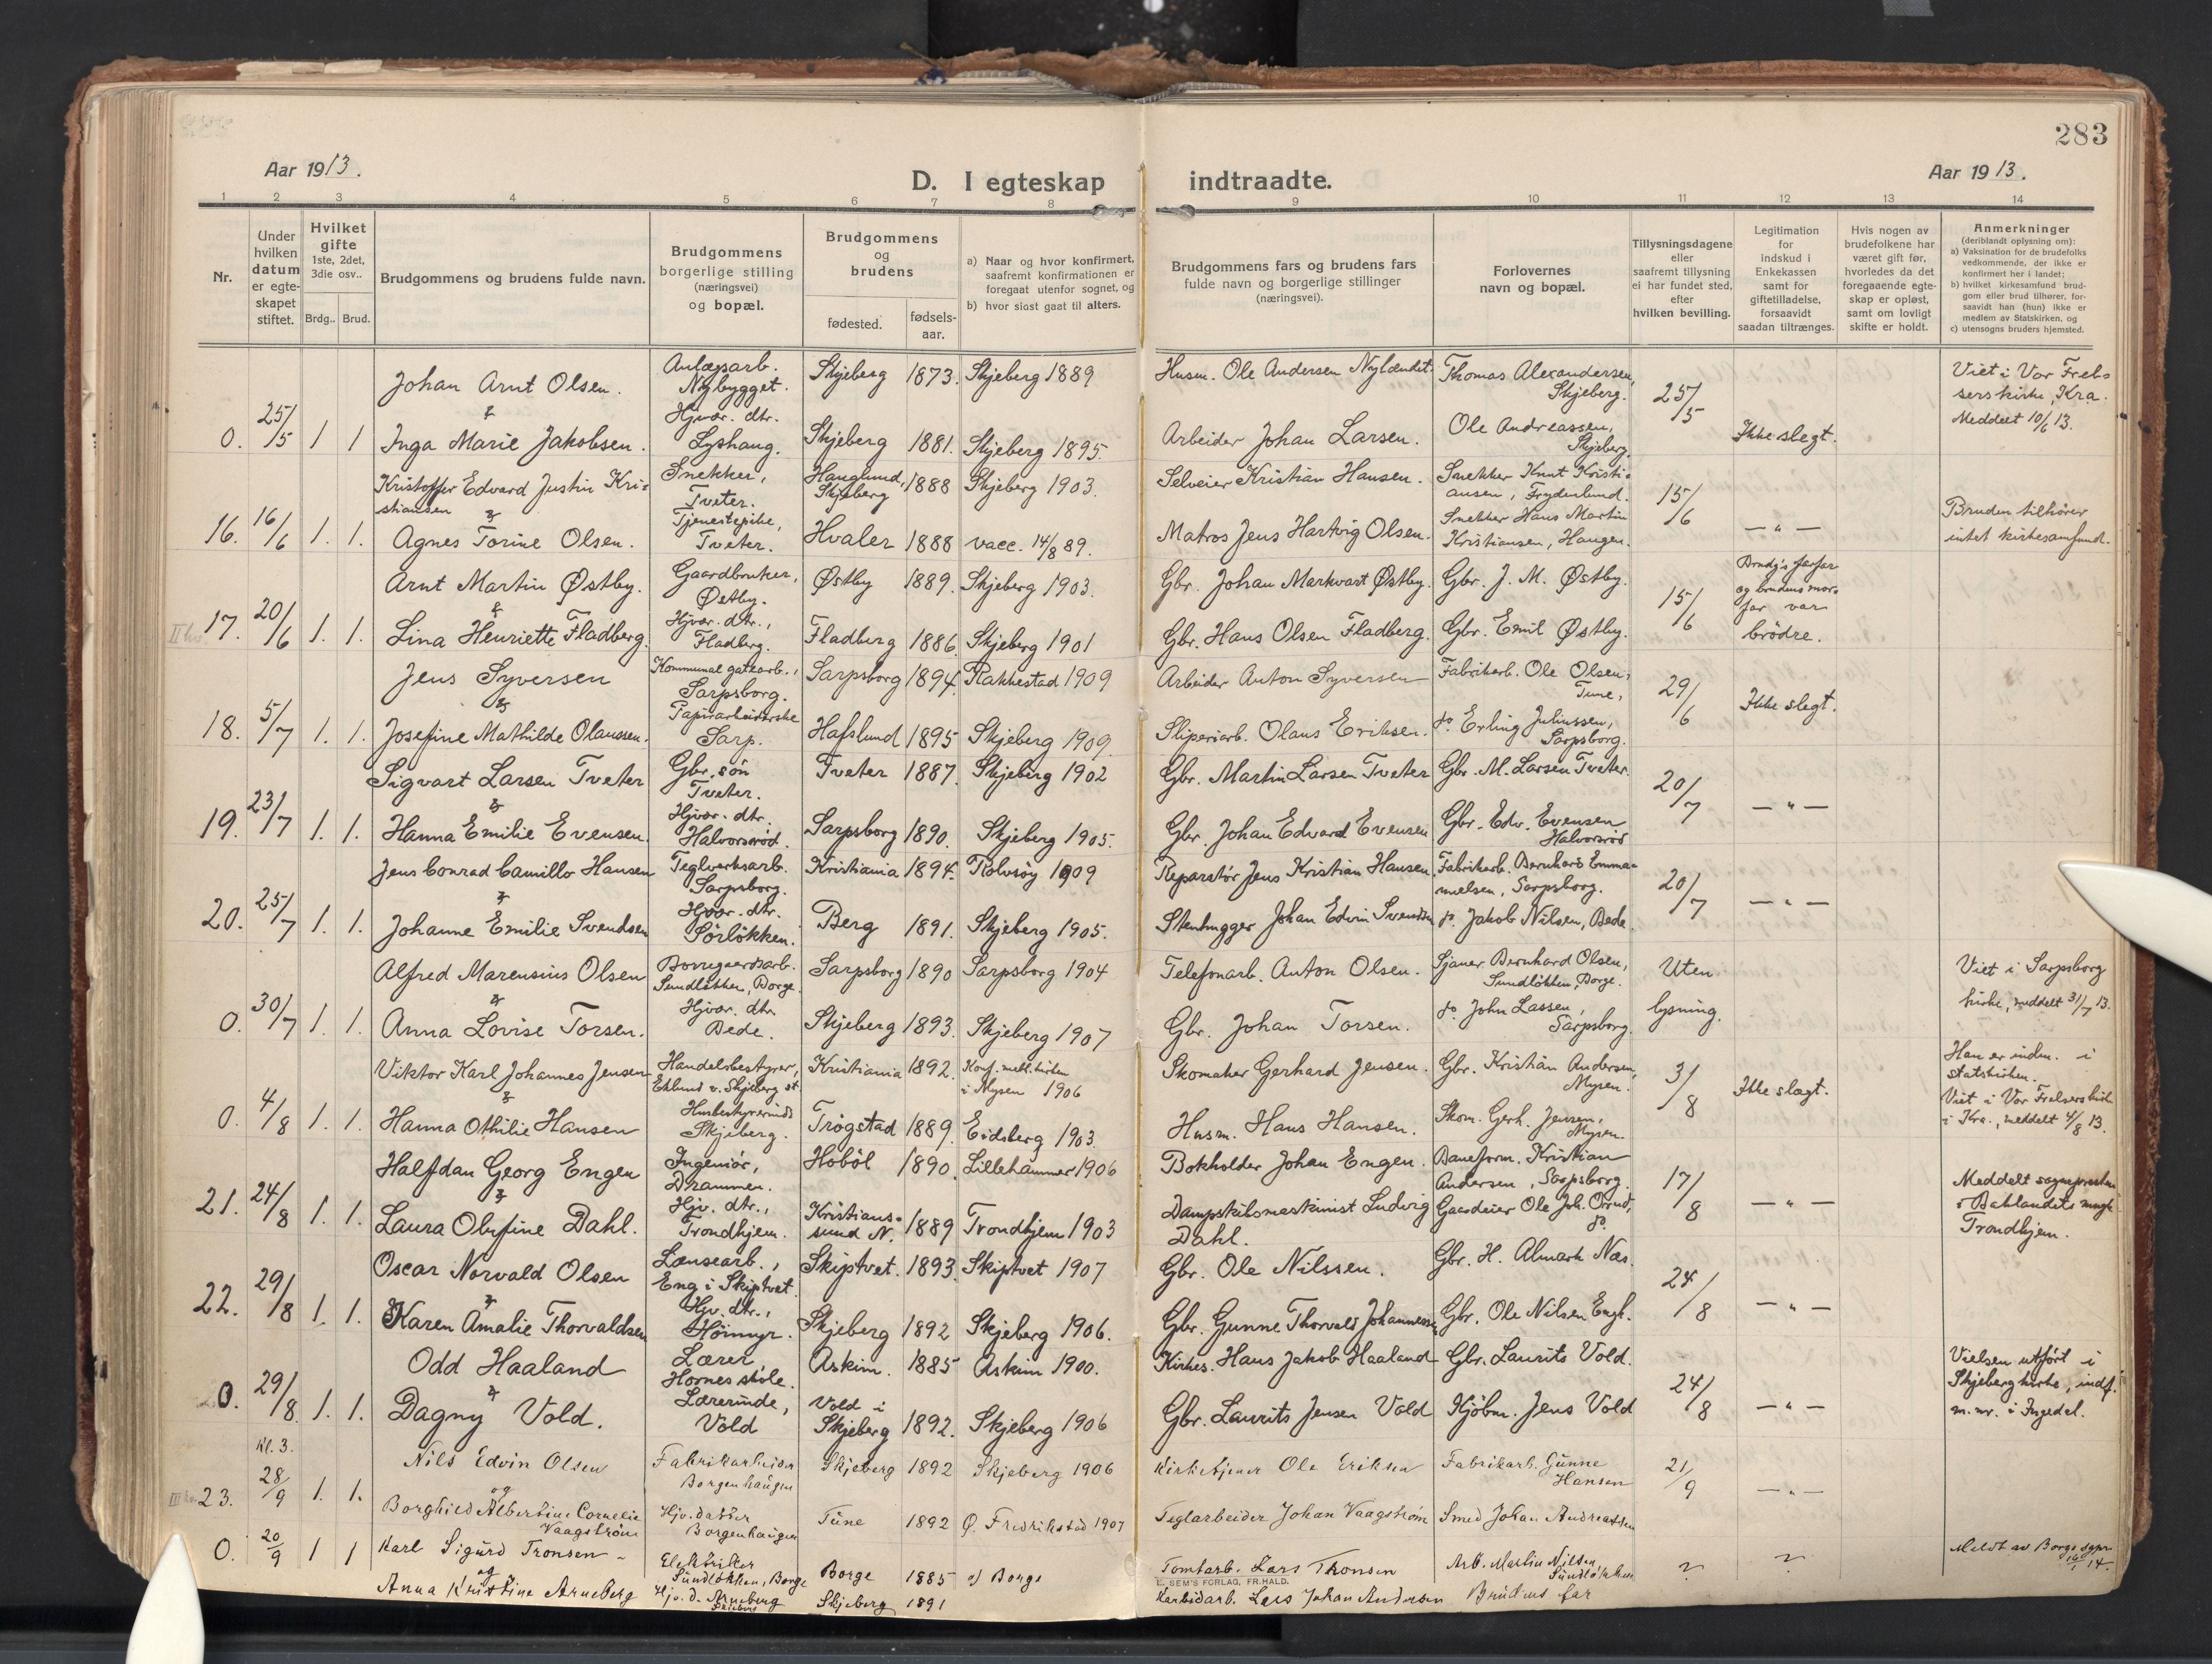 283
Aar 1913.
D. I egteskap indtraadte.
Aar 1913.
1 2 3 4 5 6 7 8 9 10 11 12 13 14
Nr.
Under hvilken datum er egteskapet stiftet.
Hvilket gifte 1ste, 2det, 3die osv..
Brdg.. Brud.
Brudgommens og brudens fulde navn.
Brudgommens borgerlige stilling (næringsvei) og bopæl.
Brudgommens og brudens
fødested.
fødsels-aar.
a) Naar og hvor konfirmert, saafremt konfirmationen er foregaat utenfor sognet, og
b) hvor sidst gaat til alters.
Brudgommens fars og brudens fars fulde navn og borgerlige stillinger (næringsvei).
Forlovernes navn og bopæl.
Tillysningsdagene eller saafremt tillysning ei har fundet sted, efter hvilken bevilling.
Legitimation for indskud i Enkekassen samt for giftetilladelse, forsaavidt saadan tiltrænges.
Hvis nogen av brudefolkene har været gift før, hvorledes da det foregaaende egteskap er opløst, samt om lovligt skifte er holdt.
Anmerkninger (deriblandt oplysning om):
a) Vaksination for de brudefolks vedkommende, der ikke er konfirmert her i landet;
b) hvilket kirkesamfund brudgom eller brud tilhører, forsaavidt han (hun) ikke er medlem av Statskirken, og
c) utensogns bruders hjemsted.
Johan Arnt Olsen. Anlægsarb. Nybygget. Skjeberg 1873. Skjeberg 1889 Husm. Ole Andersen Nylændet. Thomas Alexandersen, Skjeberg. 25/5 Viet i Vor Frelsers kirke, Kra. Meddelt 10/6 13.
&
0. 25/5 1 1 Inga Marie Jakobsen. Hjvær. dtr. Lyshaug. Skjeberg 1881. Skjeberg 1895. Arbeider Johan Larsen. Ole Andreassen, Skjeberg. Ikke slegt.
Kristoffer Edvard Justin Kristiansen Snekker, Tveter. Hauglund, Skjeberg 1888 Skjeberg 1903. Selveier Kristian Hansen. Snekker Knut Kristiansen, Frydenlund. 15/6
&
16. 16/6 1. 1. Agnes Torine Olsen. Tjenestepike, Tveter. Hvaler 1888 vacc. 14/8 89. Matros Jens Hartvig Olsen. Snekker Hans Martin Kristiansen, Haugen. — " — Bruden tilhører intet kirkesamfund.
Arnt Martin Østby. Gaardbruker, Østby. Østby 1889. Skjeberg 1903. Gbr. Johan Markvart Østby. Gbr. J. M. Østby. 15/6 Brudg's farfar og brudens morfar var brödre.
&
17. 20/6 1. 1. Lina Henriette Fladberg. Hjvær. dtr., Fladberg. Fladberg 1886. Skjeberg 1901 Gbr. Hans Olsen Fladberg. Gbr. Emil Østby.
Jens Syversen Kommunal gatearb., Sarpsborg. Sarpsborg 1894. Rakkestad 1909 Arbeider Anton Syversen Fabrikarb. Ole Olsen, Tune, 29/6 Ikke slegt.
&
18. 5/7 1. 1. Josefine Mathilde Olaussen. Papirarbeiderske Sarp. Hafslund 1895 Skjeberg 1909. Sliperiarb. Olaus Eriksen. do. Erling Juliussen, Sarpsborg.
Sigvart Larsen Tveter Gbr. søn Tveter. Tveter 1887. Skjeberg 1902 Gbr. Martin Larsen Tveter Gbr. M. Larsen Tveter. 20/7 — " —
&
19. 23/7 1. 1. Hanna Emilie Evensen. Hjvær. dtr. Halvorsrød. Sarpsborg 1890. Skjeberg 1905. Gbr. Johan Edvard Evensen Gbr. Edv. Evensen Halvorsrød
Jens Conrad Camillo Hansen Teglverksarb. Sarpsborg. Kristiania 1894. Rolvsøy 1909 Reparatør Jens Kristian Hansen. Fabrikarb. Bernhard Emmanuelsen, Sarpsborg. 20/7 — " —
&
20. 25/7 1. 1. Johanne Emilie Svendsen Hjvær. dtr. Sörlökken. Berg 1891. Skjeberg 1905. Stenhugger Johan Edvin Svendsen do. Jakob Nilsen, Bede.
Alfred Marensius Olsen Borregaardsarb. Sundløkken, Borge. Sarpsborg 1890 Sarpsborg 1904 Telefonarb. Anton Olsen. Sjauer Bernhard Olsen, Sundløkken, Borge. Uten lysning. Viet i Sarpsborg kirke, meddelt 31/7 13.
&
0. 30/7 1. 1. Anna Lovise Torsen. Hjvær. dtr. Bede. Skjeberg 1893. Skjeberg 1907 Gbr. Johan Torsen. do. John Lassen, Sarpsborg.
Viktor Karl Johannes Jensen Handelsbestyrer, Eklund v. Skjeberg st. Kristiania 1892. Konf. i Mysen 1906 Skomaker Gerhard Jensen. Gbr. Kristian Andersen, Mysen. 3/8 Ikke slegt. Han er indm. i statskirken.
&
0. 4/8 1. 1. Hanna Othilie Hansen Husbestyrerinde Skjeberg. Trøgstad 1889. Eidsberg 1903. Husm. Hans Hansen. Skom. Gerh. Jensen, Mysen. Viet i Vor Frelsers kirke i Kra., meddelt 4/8 13.
Halfdan Georg Engen Ingeniør, Drammen. Hobøl 1890. Lillehammer 1906 Bokholder Johan Engen. Baneform. Kristian Andersen, Sarpsborg. 17/8 — " — Meddelt sognepresten i Bakklandets Trondhjem.
&
21. 24/8 1. 1. Laura Olufine Dahl. Hjv. dtr., Trondhjem. Kristianssund N. 1889 Trondhjem 1903 Dampskibsmaskinist Ludvig Dahl. Gaardeier Ole Joh. do.
Oscar Norvald Olsen Lænsearb., Eng i Skiptvet. Skiptvet. 1893. Skiptvet 1907 Gbr. Ole Nilssen. Gbr. H. Almark Næs. 24/8 — " —
&
22. 29/8 1. 1. Karen Amalie Thorvaldsen Hjv. dtr., Höimyr. Skjeberg 1892 Skjeberg 1906. Gbr. Gunne Thorvald Johannessen Gbr. Ole Nilsen Engh.
Odd Haaland Lærer, Hornes skole. Askim. 1885 Askim 1900. Kirkes. Hans Jakob Haaland Gbr. Laurits Vold. 24/8 — " — Vielsen utført i Skjeberg kirke, indf. m. nr. i Ingedal.
&
0. 29/8 1. 1. Dagny Vold. Lærerinde, Vold Vold i Skjeberg 1892. Skjeberg 1906 Gbr. Laurits Jensen Vold Kjöbm. Jens Vold
Kl. 3.
Nils Edvin Olsen Fabrikarbeider Borgenhaugen Skjeberg 1892 Skjeberg 1906 Kirketjener Ole Eriksen Fabrikarb. Gunne Hansen 21/9 — " —
og
23. 28/9 1. 1. Borghild Albertine Cornelie Vaagstrøm Hjv. datter Borgenhaugen Tune 1892 Ø. Fredrikstad 1907 Teglarbeider Johan Vaagstrøm Smed Johan Andreassen
0. 20/9 1 1 Karl Sigurd Tronsen Elektriker Sundløkken, Borge Borge 1885 a) Borge Tomtarb. Lars Thonsen Arb. Martin Nilsen, Sundløkken ? ? Meldt av Borge sgpr.
og
Anna Kristine Arneberg Hjv. d. Arneberg Skjeberg Skjeberg 1891 Karbidarb. Lars Johan Andersen Brudens far
E. SEM'S FORLAG, FR.HALD.